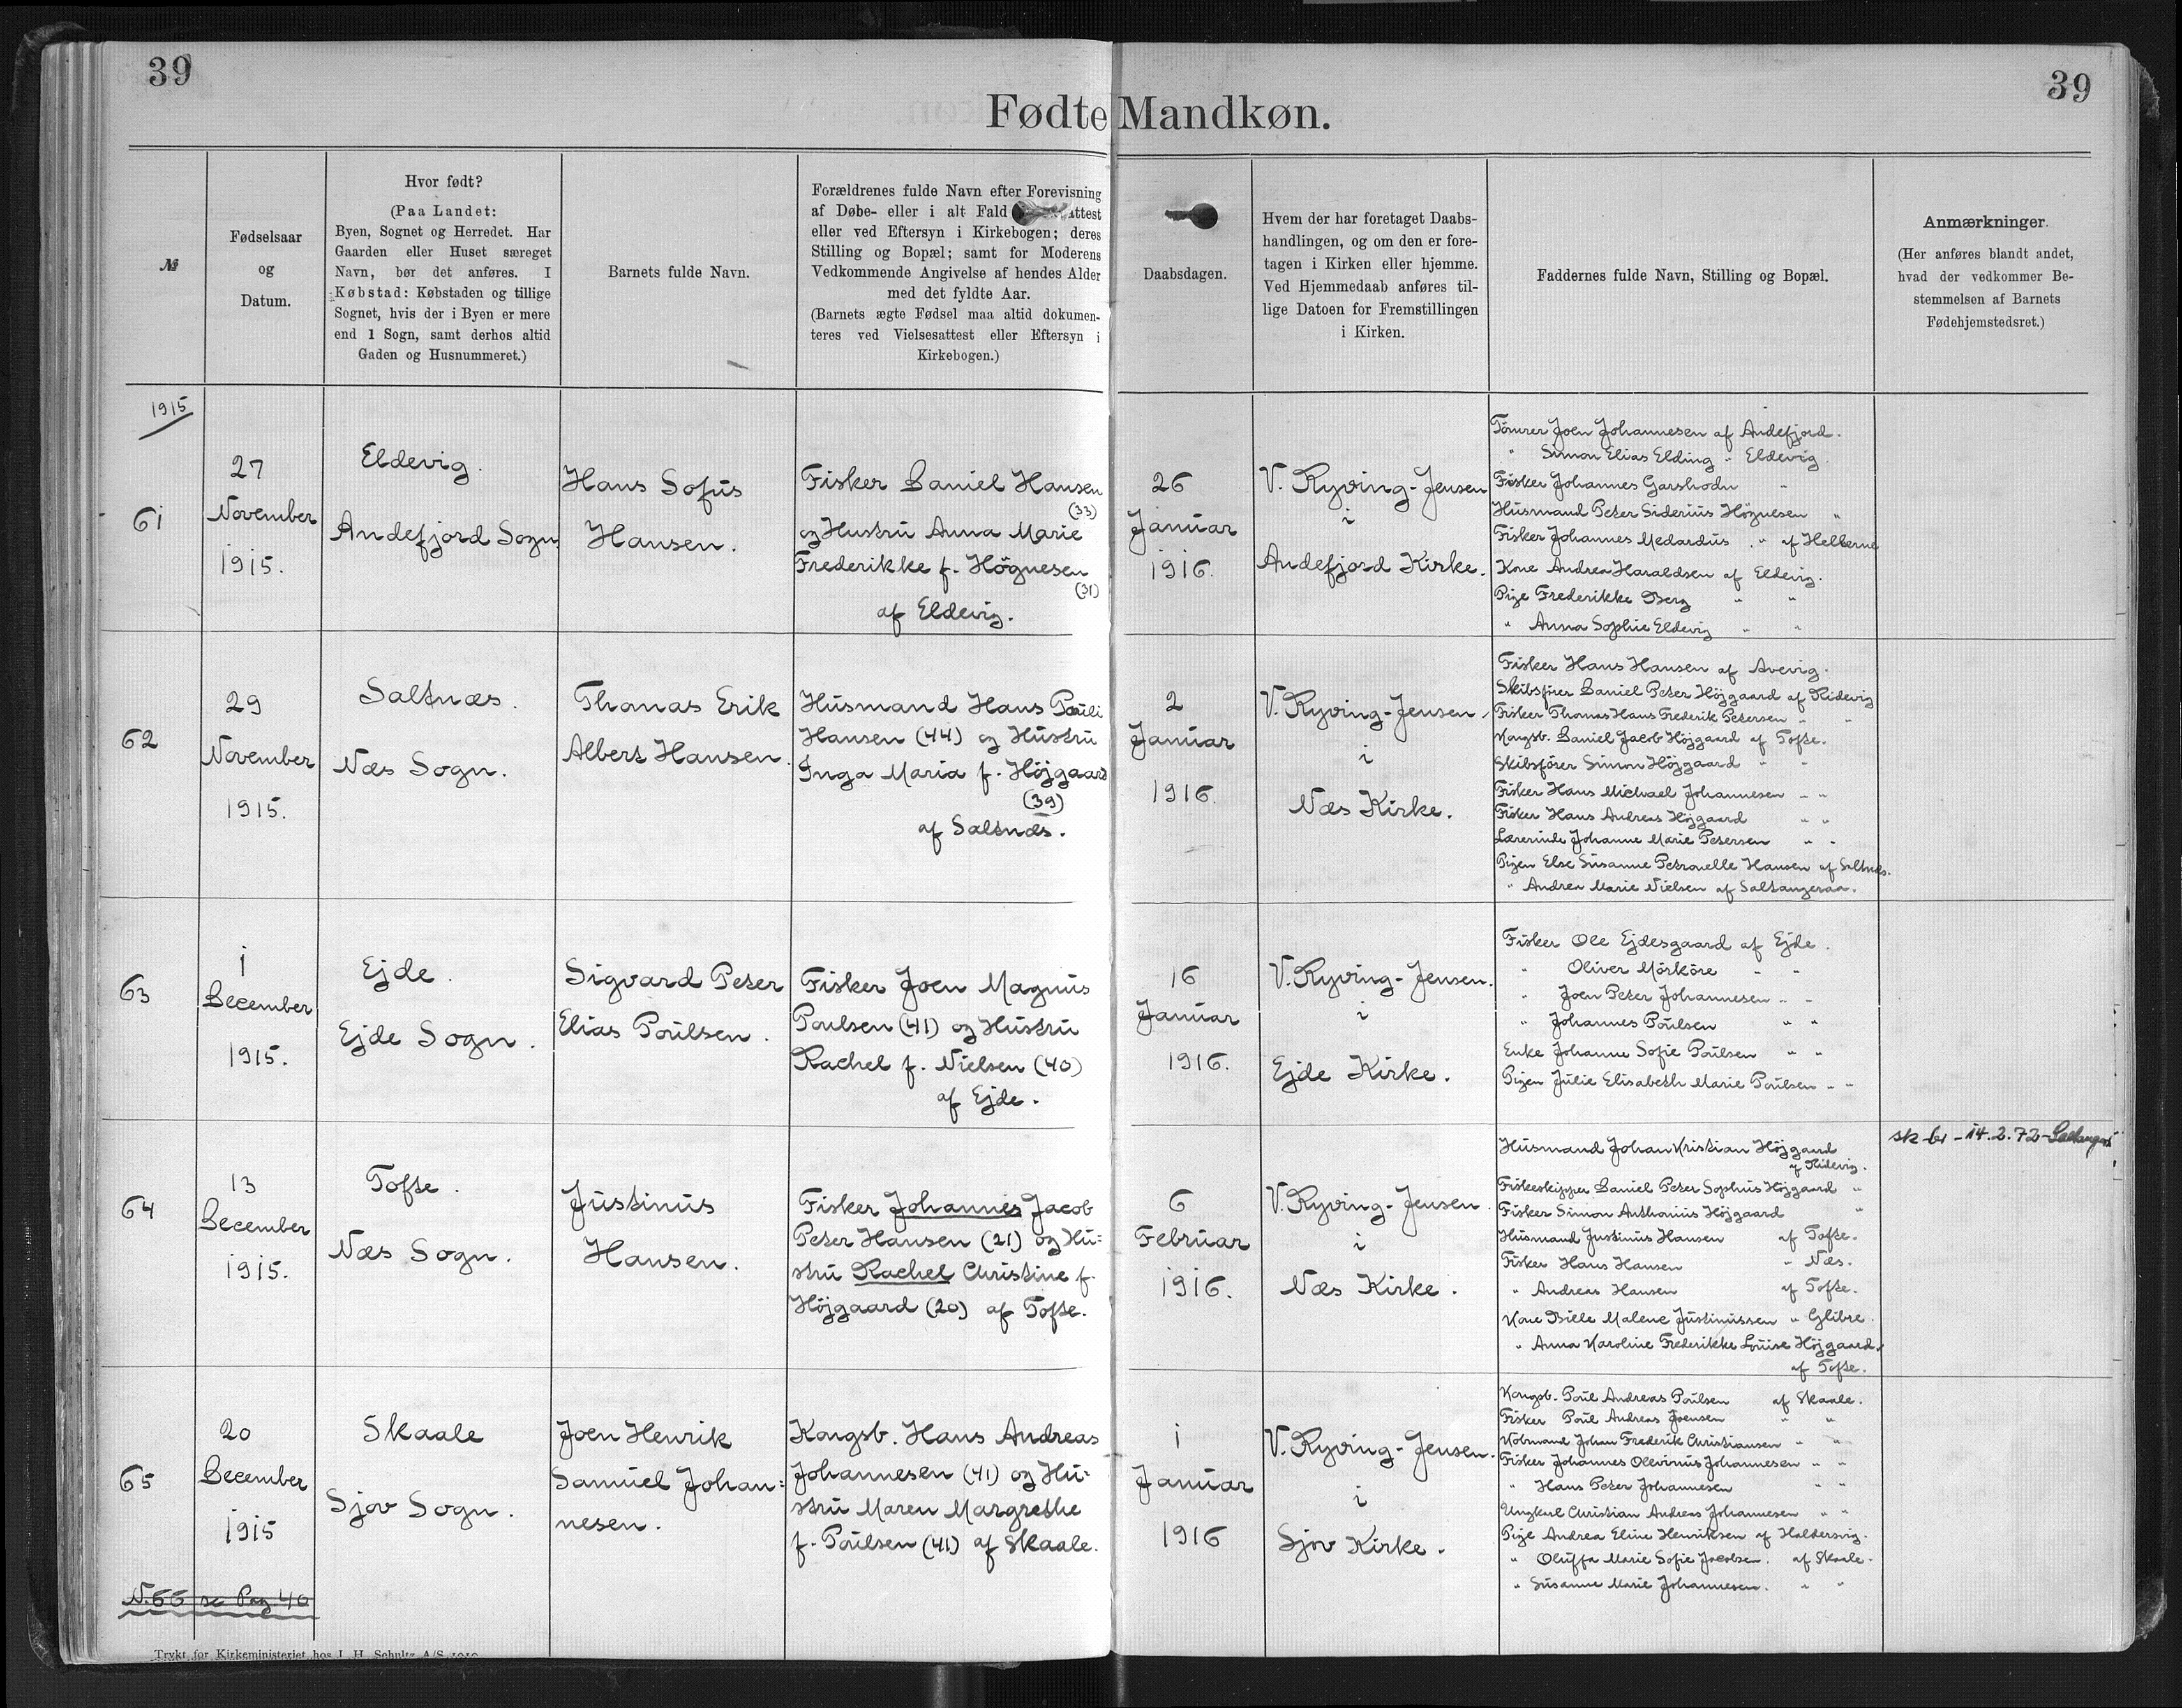 39
39
Fødte Mandkøn.
№
Fødselsaar
og
Datum.
Hvor født?
(Paa Landet:
Byen, Sognet og Herredet. Har
Gaarden eller Huset særeget
Navn, bør det anføres. I
Købstad: Købstaden og tillige
Sognet, hvis der i Byen er mere
end 1 Sogn, samt derhos altid
Gaden og Husnummeret.)
Barnets fulde Navn.
Forældrenes fulde Navn efter Forevisning
af Døbe- eller i alt Fald attest
eller ved Eftersyn i Kirkebogen; deres
Stilling og Bopæl; samt for Moderens
Vedkommende Angivelse af hendes Alder
med det fyldte Aar.
(Barnets ægte Fødsel maa altid dokumen-
teres ved Vielsesattest eller Eftersyn i
Kirkebogen.)
Daabsdagen.
Hvem der har foretaget Daabs-
handlingen, og om den er fore-
tagen i Kirken eller hjemme.
Ved Hjemmedaab anføres til-
lige Datoen for Fremstillingen
i Kirken.
Faddernes fulde Navn, Stilling og Bopæl.
Anmærkninger.
(Her anføres blandt andet,
hvad der vedkommer Be-
stemmelsen af Barnets
Fødehjemstedsret.)
1915
61
27
November
1915.
Eldevig.
Andefjord Sogn.
Hans Sofus
Hansen.
Fisker Daniel Hansen
(33)
og Hustru Anna Marie
Frederikke f. Högnesen
(31)
af Eldevig.
26
Januar
1916.
V. Ryving-Jensen
i
Andefjord Kirke.
Tömrer Joen Johannesen af Andefjord.
" Simon Elias Elding " Eldevig.
Fisker Johannes Garshodn "
Husmand Peter Siderius Högnesen "
Fisker Johannes Medardus " af Hellerne
Kone Andrea Haraldsen af Eldevig.
Pige Frederikke Berg " "
" Anna Sophie Eldevig " "
62
29
November
1915.
Saltnæs.
Næs Sogn.
Thomas Erik
Albert Hansen.
Husmand Hans Pauli
Hansen (44) og Hustru
Inga Maria f. Højgaard
(39)
af Saltnæs.
2
Januar
1916.
V. Ryving-Jensen.
i
Næs Kirke.
Fisker Hans Hansen af Avevig.
Skibsfører Daniel Peter Højgaard af Ridevig
Fisker Thomas Hans Frederik Petersen " "
Kongsb. Daniel Jacob Højgaard af Tofte.
Skibsfører Simon Højgaard " "
Fisker Hans Michael Johannesen " "
Fisker Hans Andreas Højgaard " "
Lærerinde Johanne Marie Petersen " "
Pigen Else Susanne Petronelle Hansen af Saltnæs.
" Andrea Marie Nielsen af Saltangeraa.
63
1
December
1915.
Ejde.
Ejde Sogn.
Sigvard Peter
Elias Poulsen.
Fisker Joen Magnus
Poulsen (41) og Hustru
Rachel f. Nielsen (40)
af Ejde.
16
Januar
1916.
V. Ryving-Jensen.
i
Ejde Kirke.
Fisker Ole Ejdesgaard af Ejde.
" Oliver Mörköre " "
" Joen Peter Johannesen " "
" Johannes Poulsen " "
Enke Johanne Sofie Poulsen " "
Pigen Julie Elisabeth Marie Poulsen " "
64
13
December
1915.
Tofte.
Næs Sogn.
Justinus
Hansen.
Fisker Johannes Jacob
Peter Hansen (21) og Hu=
stru Rachel Christine f.
Højgaard (20) af Tofte.
6
Februar
1916.
V. Ryving-Jensen.
i
Næs Kirke.
Husmand Johan Kristian Højgaard
af Ridevig.
Fiskeskipper Daniel Peter Sophus Højgaard "
Fisker Simon Anthonius Højgaard "
Husmand Justinus Hansen af Tofte.
Fisker Hans Hansen " Næs.
" Andreas Hansen af Tofte.
Kone Bielle Malene Justinussen " Glibre.
" Anna Karoline Frederikke Louise Højgaard,
af Tofte.
14.2.72
65
20
December
1915
Skaale
Sjov Sogn.
Joen Henrik
Samuel Johan=
nesen.
Kongsb. Hans Andreas
Johannesen (41) og Hu-
stru Maren Margrethe
f. Poulsen (41) af Skaale.
1
Januar
1916
V. Ryving-Jensen.
i
Sjov Kirke.
Kongsb. Poul Andreas Poulsen af Skaale.
Fisker Poul Andreas Joensen " "
Kobmand Johan Frederik Christiansen " "
Fisker Johannes Olevinus Johannesen " "
" Hans Peter Johannesen " "
Ungkarl Christian Andreas Johannesen " "
Pige Andrea Eline Henriksen af Haldersvig.
" Oluffa Marie Sofie Jacobsen. af Skaale.
" Susanne Marie Johannesen. " "
N. 66 se Pag 40
Trykt for Kirkeministeriet hos J. H. Schultz A/S